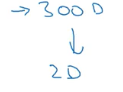 → 300 D
↓
2D